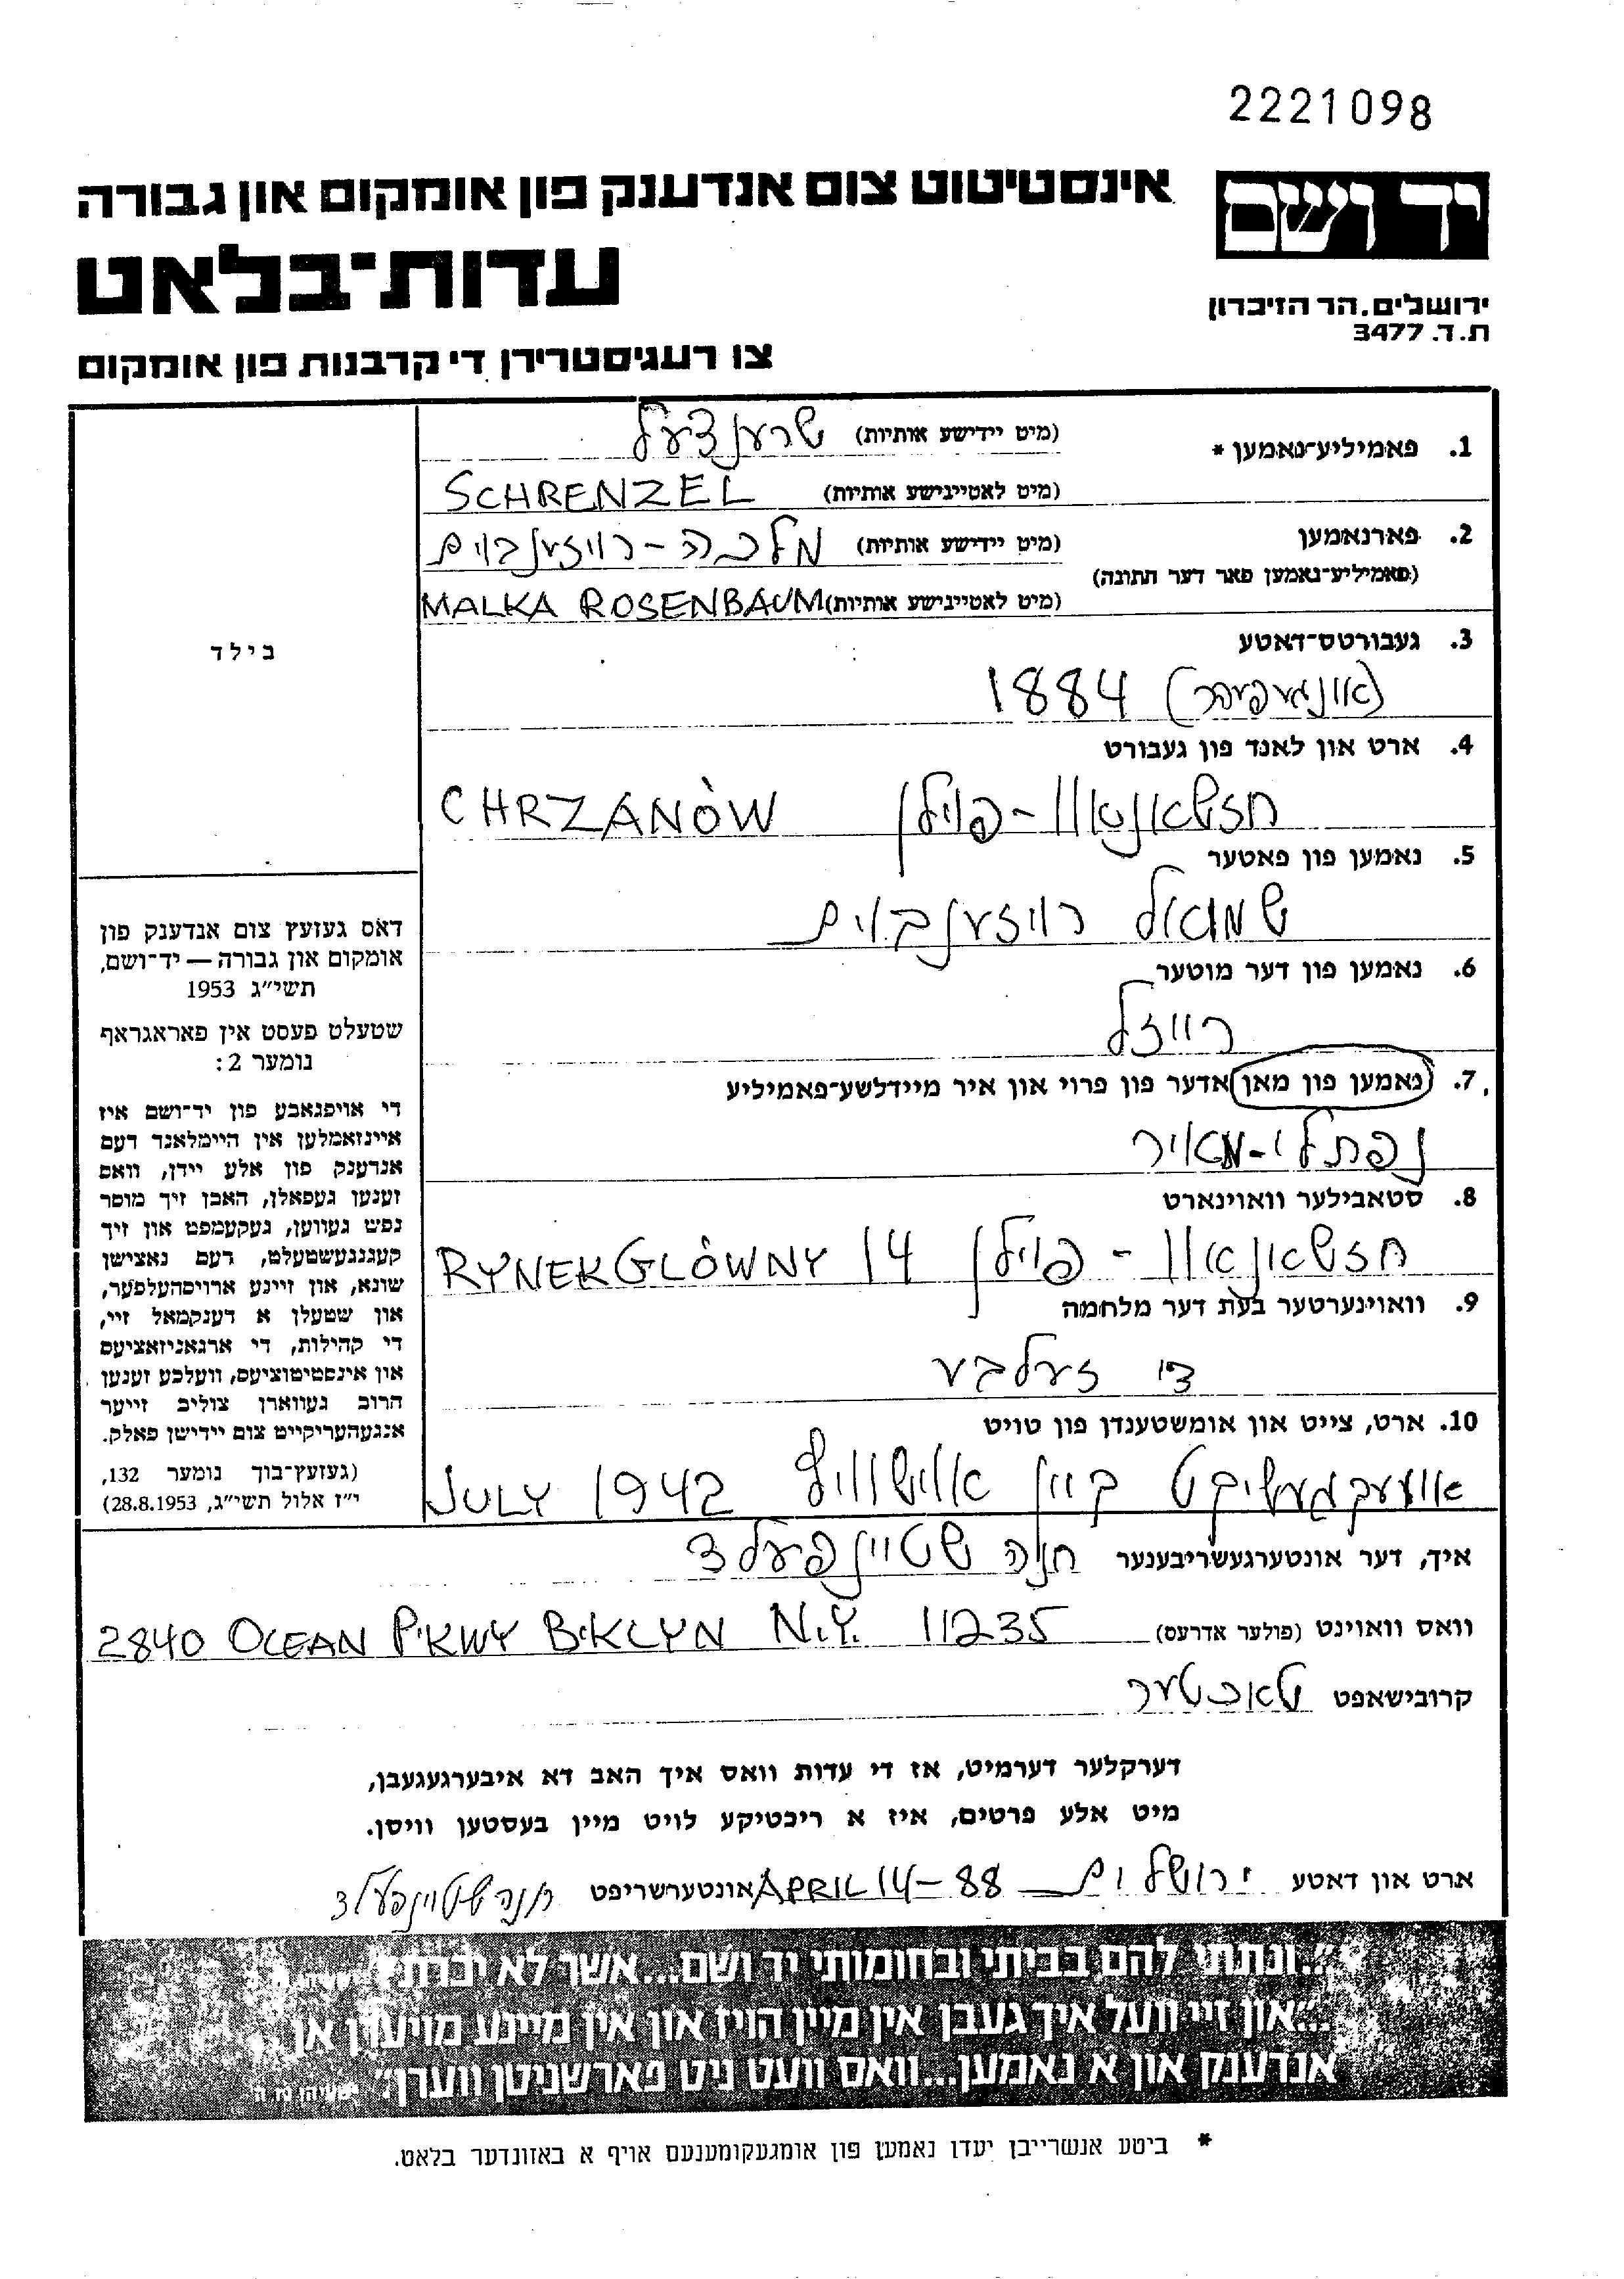 2221098
יד ושם
אינסטיטוט צום אנדענק פון אומקום און גבורה
עדות־בלאט
ירושלים, הר הזיכרון
ת.ד. 3477
צו רעגיסטרירן די קרבנות פון אומקום
1. פאמיליע־נאמען * (מיט יידישע אותיות) שרענצעל
(מיט לאטיינישע אותיות) SCHRENZEL
2. פארנאמען (מיט יידישע אותיות) מלכה-רויזענבוים
(פאמיליע־נאמען פאר דער חתונה)
(מיט לאטיינישע אותיות) MALKA ROSENBAUM
3. געבורטס־דאטע
(אונגעפיהר) 1884
4. ארט און לאנד פון געבורט
חזשאנאוו - פוילן CHRZANÓW
5. נאמען פון פאטער
שמואל רויזענבוים
6. נאמען פון דער מוטער
רייזל
7. נאמען פון מאן אדער פון פרוי און איר מיידלשע־פאמיליע
נפתלי-מאיר
8. סטאבילער וואוינארט
חזשאנאוו - פוילן RYNEK GLÓWNY 14
9. וואוינערטער בעת דער מלחמה
די זעלבע
10. ארט, צייט און אומשטענדן פון טויט
אוועקגעשיקט קיין אוישוויץ JULY 1942
בילד
דאס געזעץ צום אנדענק פון
אומקום און גבורה — יד־ושם,
תשי״ג 1953
שטעלט פעסט אין פאראגראף
נומער 2:
די אויפגאבע פון יד־ושם איז
איינזאמלען אין היימלאנד דעם
אנדענק פון אלע יידן, וואס
זענען געפאלן, האבן זיך מוסר
נפש געווען, געקעמפט און זיך
קעגנגעשטעלט, דעם נאצישן
שונא, און זיינע ארויסהעלפער,
און שטעלן א דענקמאל זיי,
די קהילות, די ארגאניזאציעס
און אינסטיטוציעס, וועלכע זענען
חרוב געווארן צוליב זייער
אנגעהעריקייט צום יידישן פאלק.
(געזעץ־בוך נומער 132,
י״ז אלול תשי״ג, 28.8.1953)
איך, דער אונטערגעשריבענער חנה שטיינפעלד
וואס וואוינט (פולער אדרעס) 2840 OCEAN PKWY BKLYN N.Y. 11235
קרובישאפט טאכטער
דערקלער דערמיט, אז די עדות וואס איך האב דא איבערגעגעבן,
מיט אלע פרטים, איז א ריכטיקע לויט מיין בעסטען וויסן.
ארט און דאטע ירושלים APRIL 14-88 אונטערשריפט חנה שטיינפעלד
״..ונתתי להם בביתי ובחומותי יד ושם...אשר לא יכרת״
...״און זיי וועל איך געבן אין מיין הויז און אין מיינע מויערן אן
אנדענק און א נאמען...וואס וועט ניט פארשניטן ווערן״ ישעיהו נו ה
* ביטע אנשרייבן יעדן נאמען פון אומגעקומענעם אויף א באזונדער בלאט.